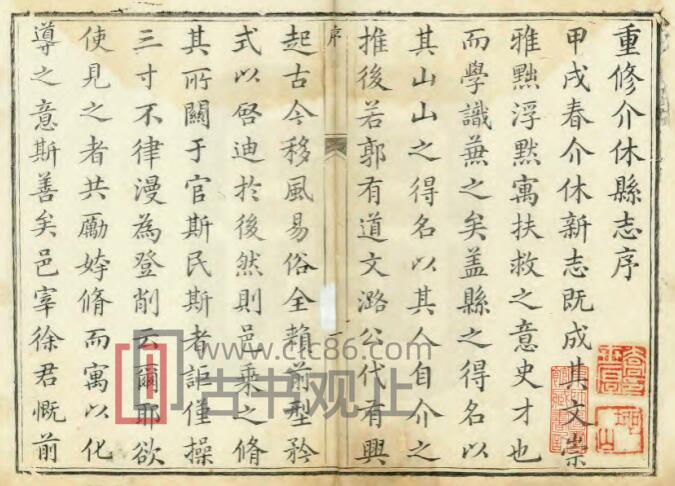 重修介休縣志序
甲戌春介休新志既成其文崇
雅黜浮默寓扶救之意史才也
而學識蕪之矣盖縣之得名以
其山山之得名以其人自介之
推後若郭有道文潞公代有興
序
一
起古今移風易俗全賴前型矜
式以啓迪於後然則邑乘之脩
其所關于官斯民斯者詎僅操
三寸不律漫為登削云爾耶欲
使見之者共勵姱脩而寓以化
導之意斯善矣邑宰徐君慨前
www.ctc86.com
古中观止